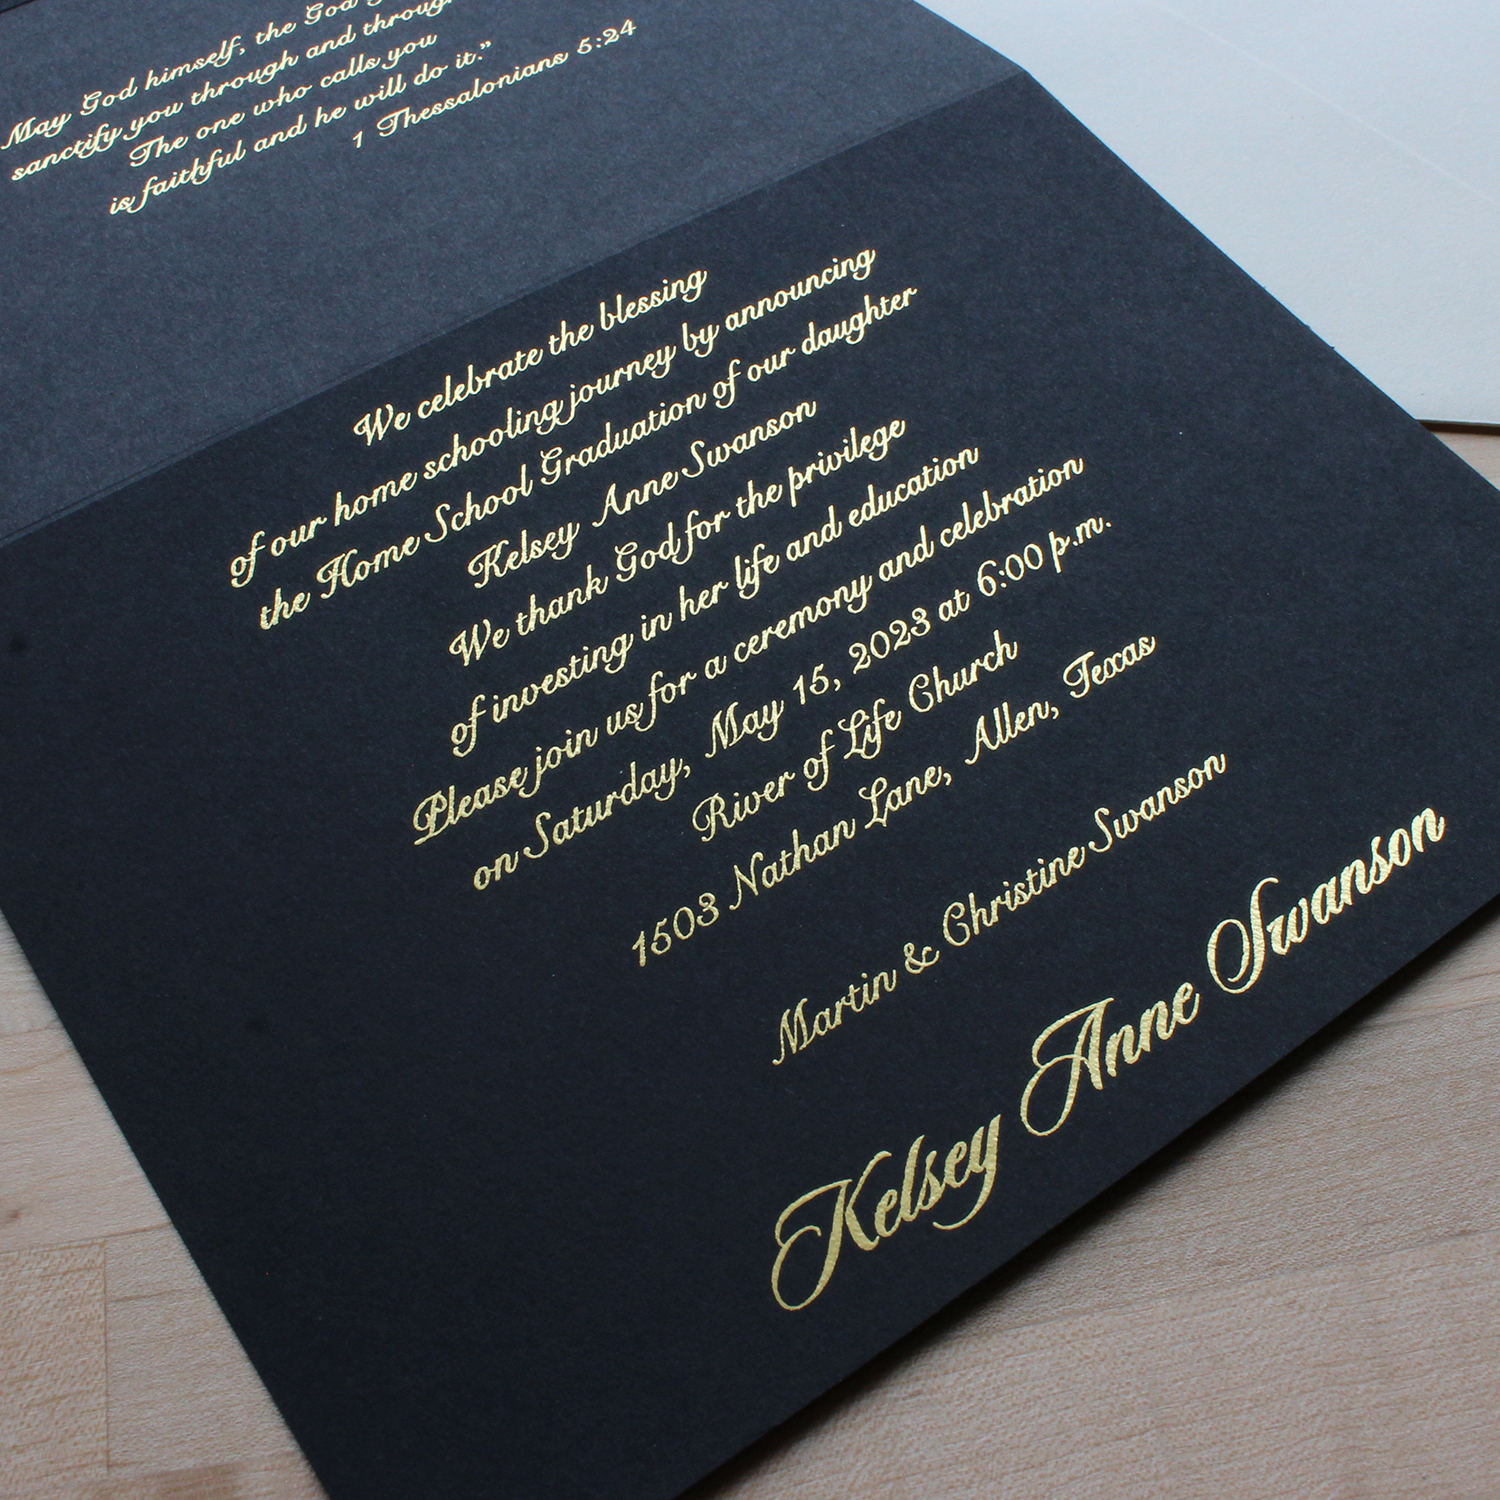 May God himself, the God
sanctify you through and through
The one who calls you
is faithful and he will do it."
1 Thessalonians 5:24
We celebrate the blessing
of our home schooling journey by announcing
the Home School Graduation of our daughter
Kelsey Anne Swanson
We thank God for the privilege
of investing in her life and education
Please join us for a ceremony and celebration
on Saturday, May 15, 2023 at 6:00 p.m.
River of Life Church
1503 Nathan Lane, Allen, Texas
Martin & Christine Swanson
Kelsey Anne Swanson